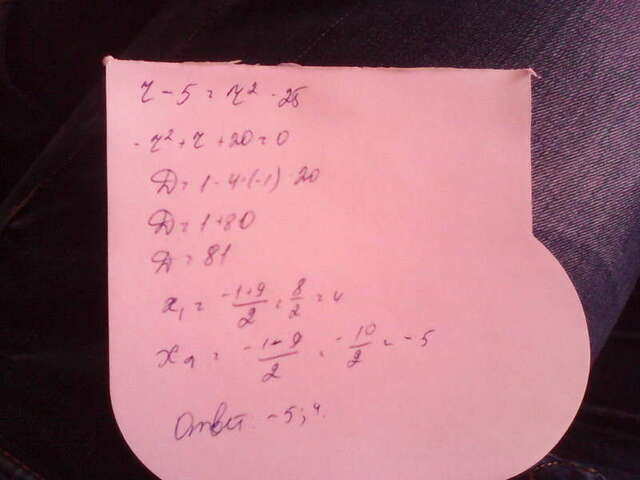 r - 5 = r² - 25
- r² + r + 20 = 0
D = 1 - 4·(-1)·20
D = 1 + 80
D = 81
x₁ = \frac{-1+9}{2} = \frac{8}{2} = 4
x₂ = \frac{-1-9}{2} = -\frac{10}{2} = -5
Ответ: -5; 4.